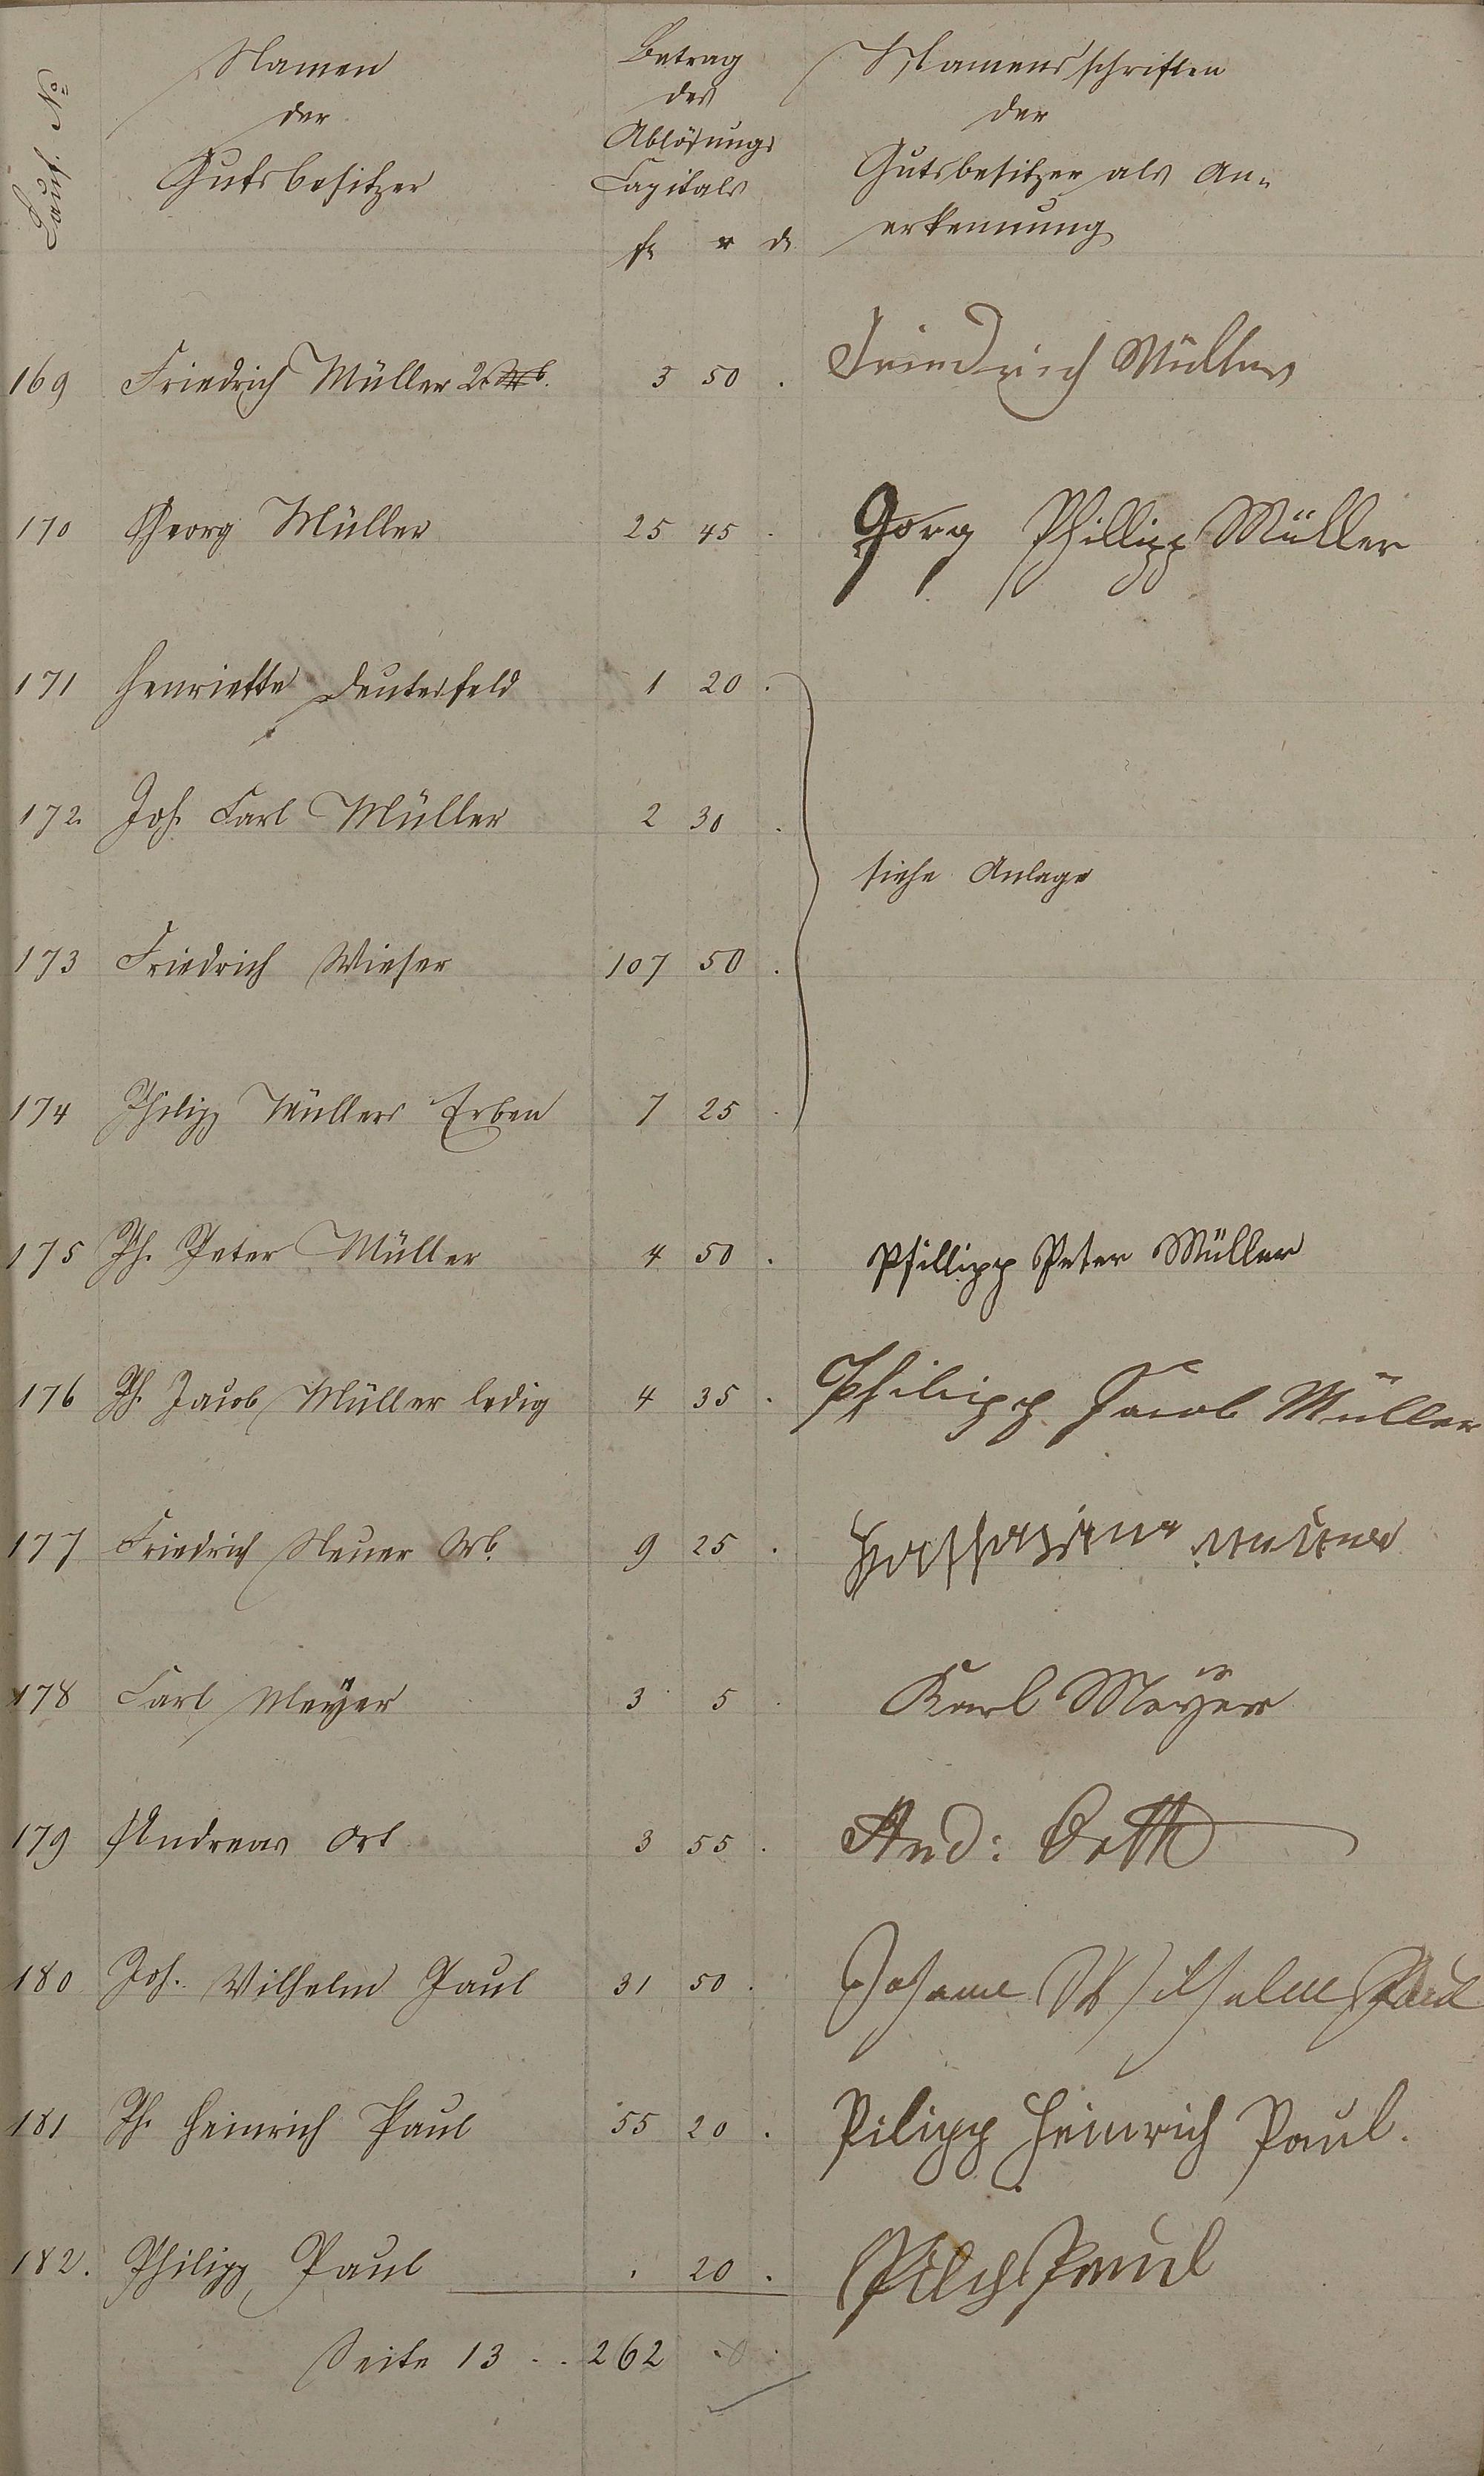 Lauf. No
Namen
der
Gutsbesitzer
Betrag
des
Ablösungs
Capitals
fl x d
Namensschriften
der
Gutsbesitzer als An-
erkennung
169 Friedrich Müller 2r 3 50 . Friedrich Müller
170 Georg Müller 25 45 . Gorg Phillipp Müller
171 Henriette Deutesfeld 1 20 .
172 Joh. Carl Müller 2 30 .
siehe Anlage
173 Friedrich Wieser 107 50 .
174 Philipp Müllers Erben 7 25 .
175 Ph. Peter Müller 4 50 . Phillipp Peter Müller
176 Ph. Jacob Müller ledig 4 35 . Philipp Jacob Müller
177 Friedrich Neuer 9 25 .
178 Carl Meÿer 3 5 . Karl Meÿer
179 Andreas Ort 3 55 . And: Orth
180 Joh. Wilhelm Paul 31 50 . Johann Wilhelm Paul
181 Ph. Heinrich Paul 55 20 . Pilipp Heinrich Paul.
182. Philipp Paul . 20 . Paul
Seite 13 . . 262